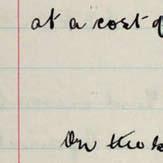 at a cost of
On this